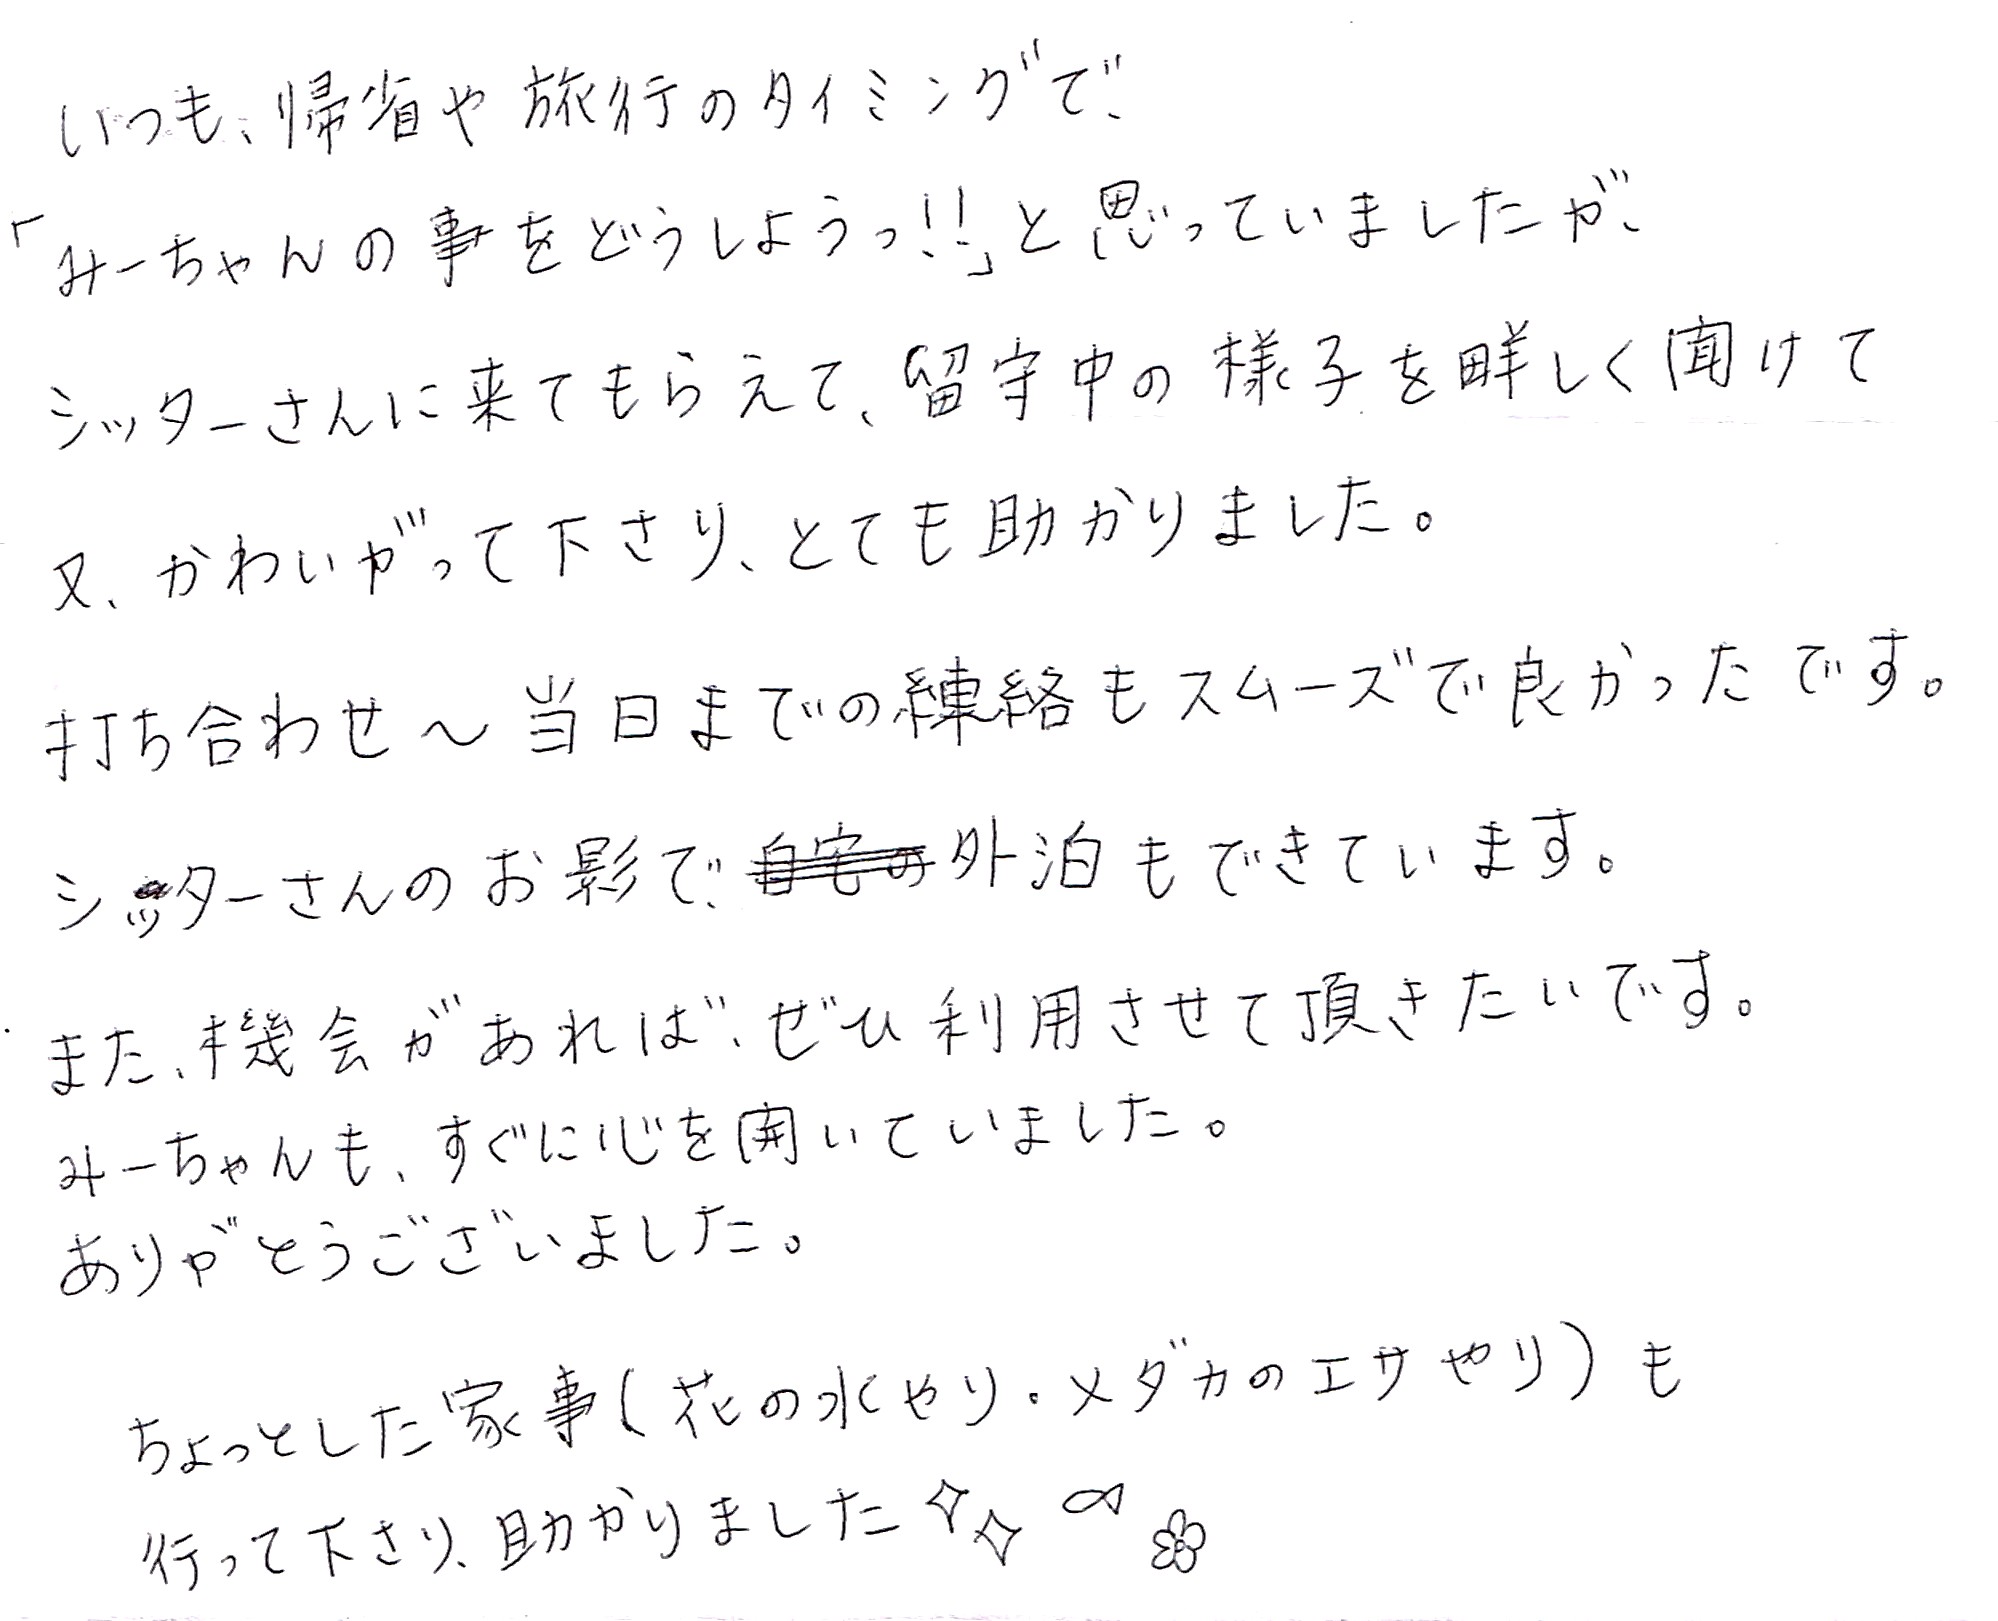 いつも、帰省や旅行のタイミングで、
「みーちゃんの事をどうしようっ!!」と思っていましたが、
シッターさんに来てもらえて、留守中の様子を詳しく聞けて
又、かわいがって下さり、とても助かりました。
打ち合わせ〜当日までの練絡もスムーズで良かったです。
シッターさんのお影で、外泊もできています。
また、機会があれば、ぜひ利用させて頂きたいです。
みーちゃんも、すぐに心を開いていました。
ありがとうございました。
ちょっとした家事(花の水やり・メダカのエサやり)も
行って下さり、助かりました